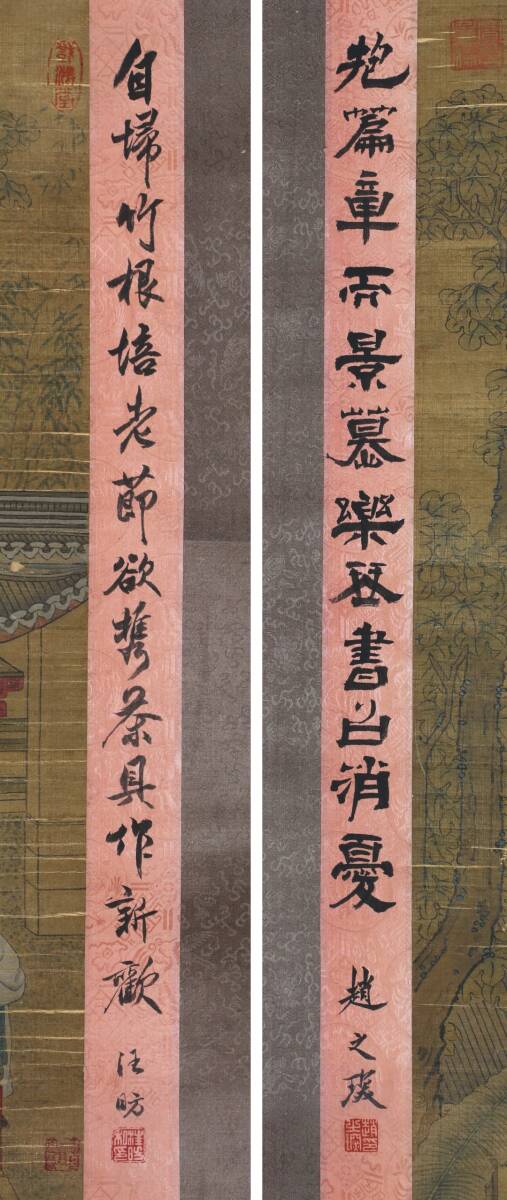 抱篇章而景慕樂琴書㠯消憂
趙之琛
自埽竹根培老節欲攜茶具作新歡
汪昉